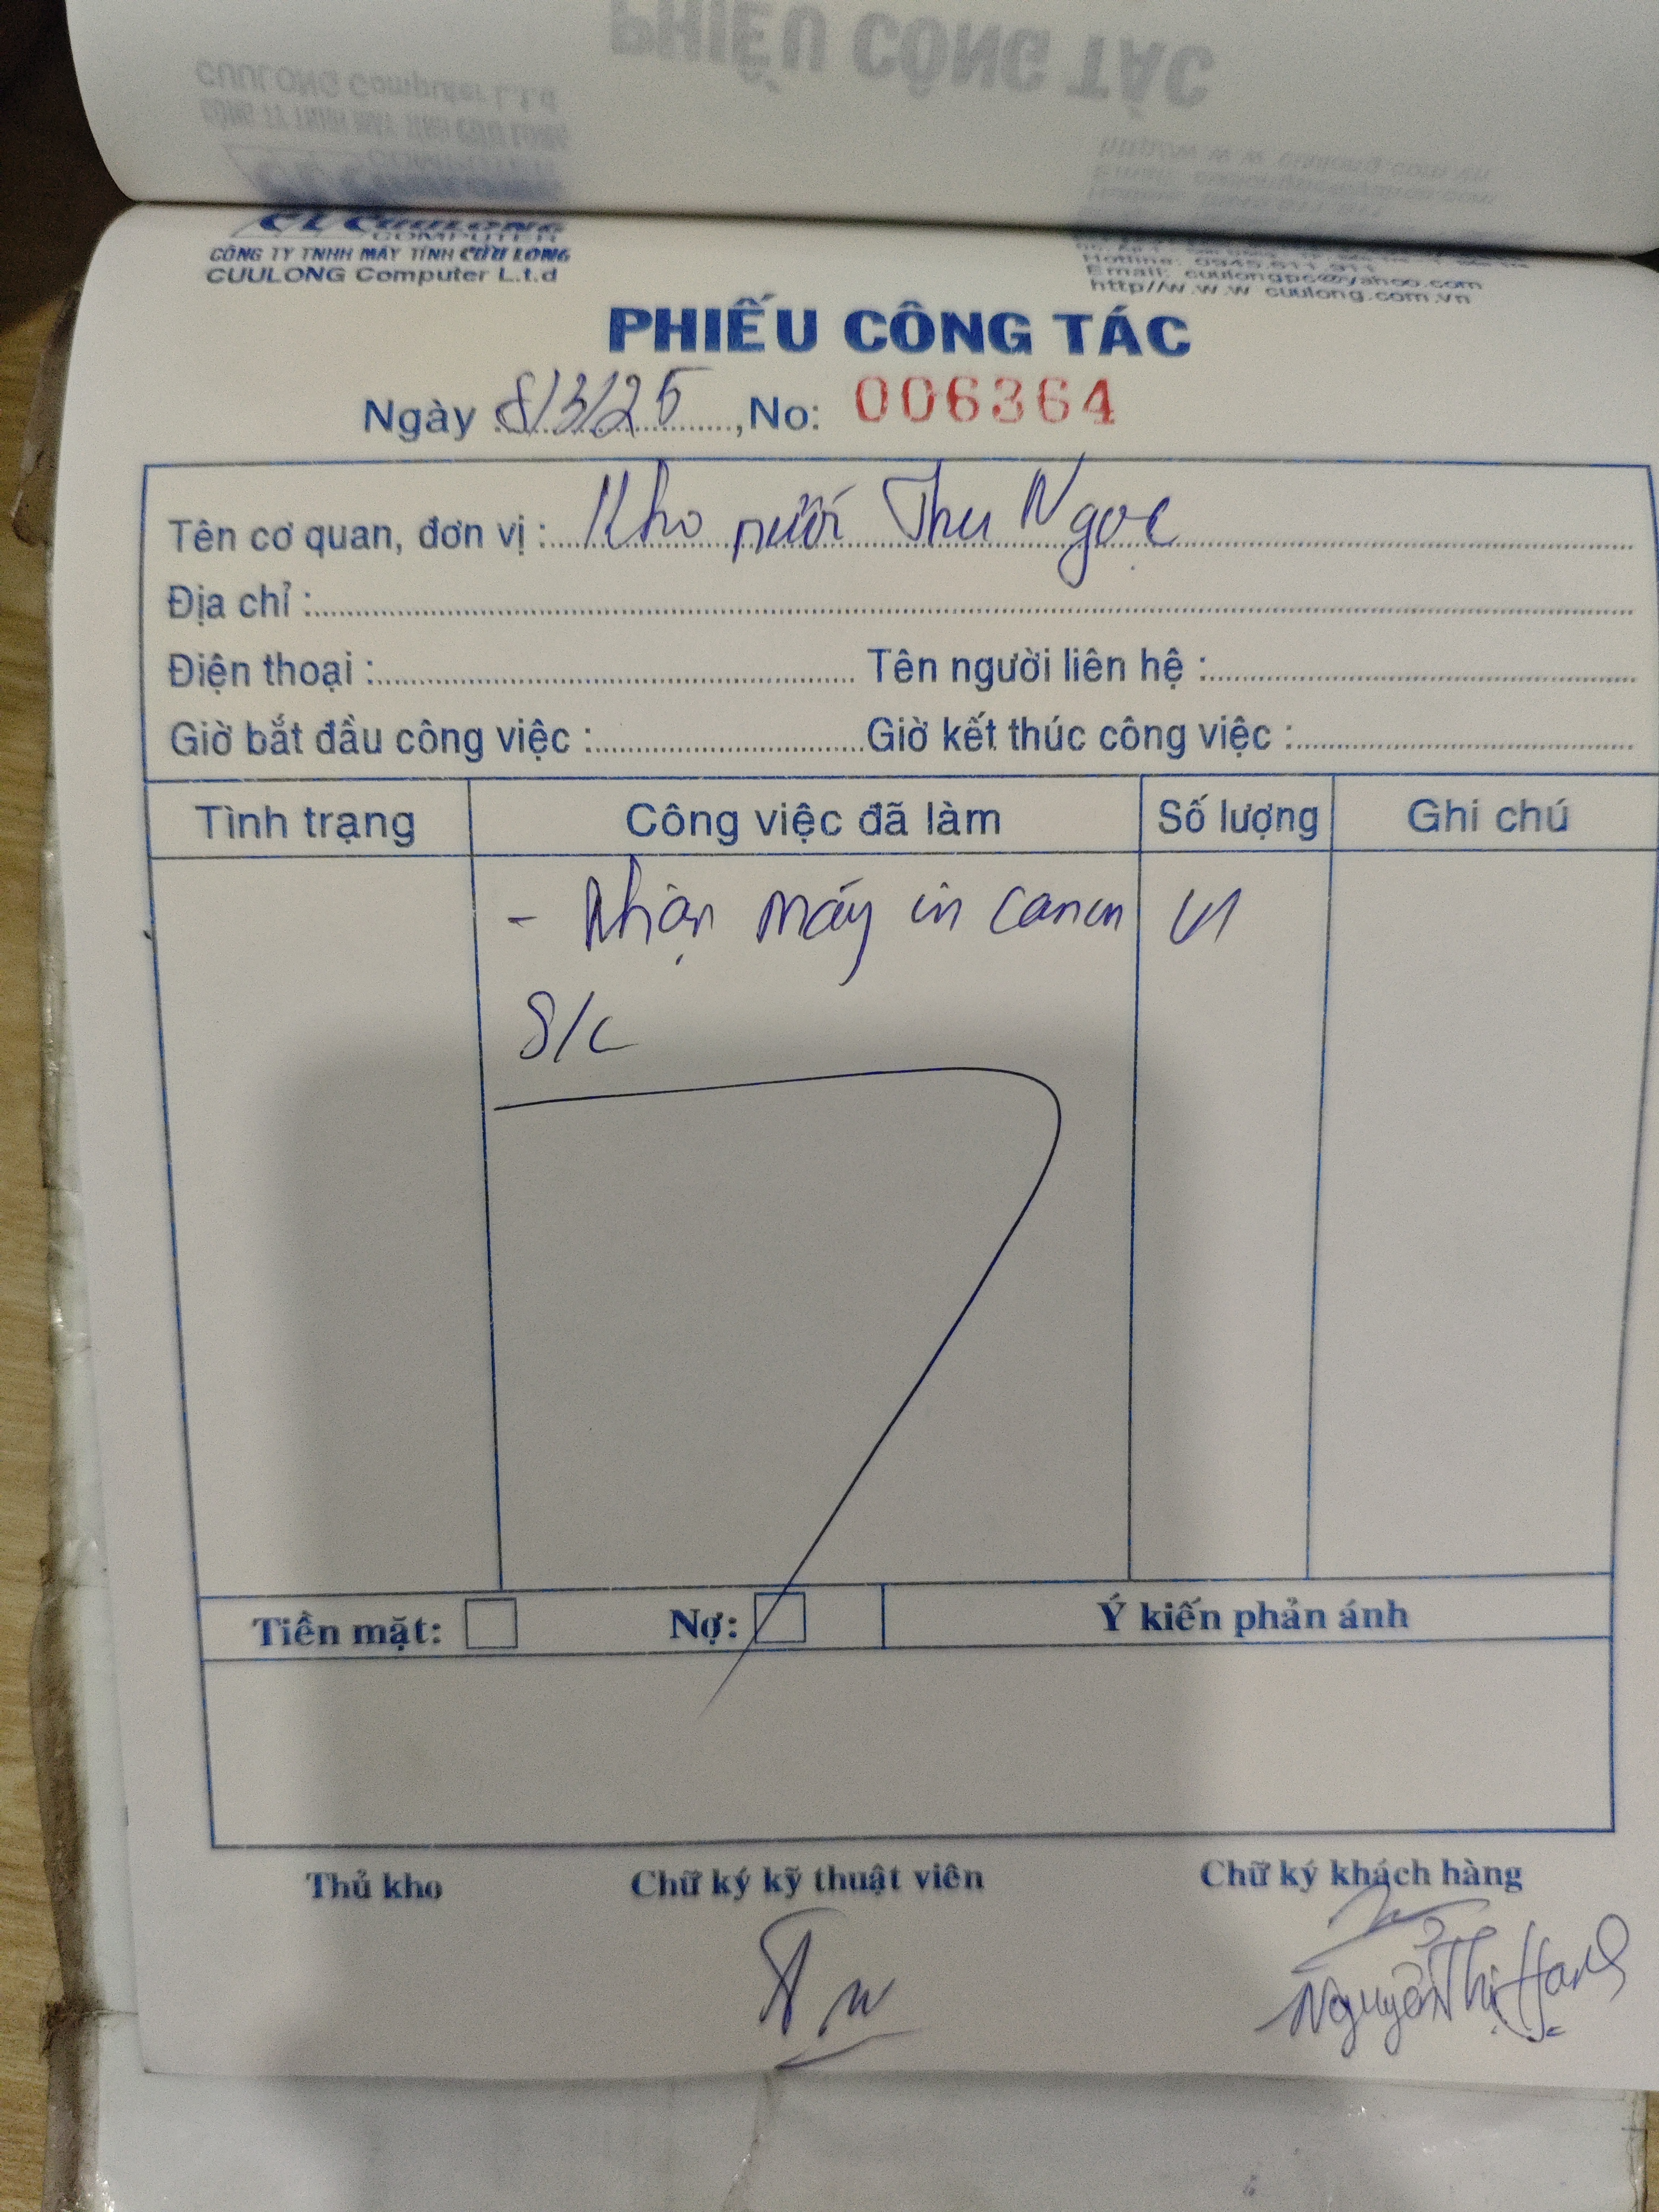 CL CUULONG
COMPUTER
CÔNG TY TNHH MÁY TÍNH CỬU LONG
CUULONG Computer L.t.d
Hotline: 0945.611.911
Email: cuulongpc@yahoo.com
http//w.w.w cuulong.com.vn
PHIẾU CÔNG TÁC
Ngày 8/3/25, No: 006364
Tên cơ quan, đơn vị : Kho nước Thu Ngọc
Địa chỉ :
Điện thoại : Tên người liên hệ :
Giờ bắt đầu công việc : Giờ kết thúc công việc :
Tình trạng Công việc đã làm Số lượng Ghi chú
- Nhận máy in canon
S/C
Tiền mặt: Nợ: Ý kiến phản ánh
Thủ kho Chữ ký kỹ thuật viên Chữ ký khách hàng
Nguyễn Thị Hạnh